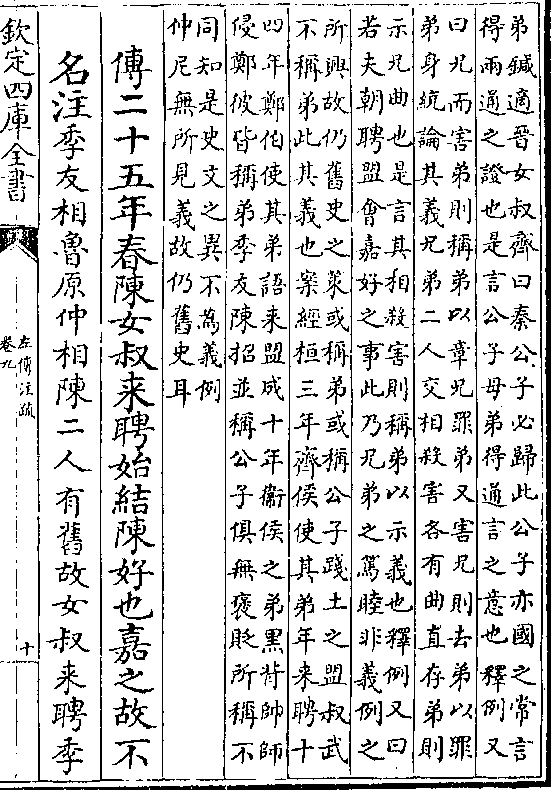 弟鍼適晉女叔齊曰秦公子必歸此公子亦國之常言
得兩通之證也是言公子母弟得通言之意也釋例又
曰兄而害弟則稱弟以章兄罪弟又害兄則去弟以罪
弟身統論其義兄弟二人交相殺害各有曲直存弟則
示兄曲也是言其相殺害則稱弟以示義也釋例又曰
若夫朝聘盟會嘉好之事此乃兄弟之篤睦非義例之
所興故仍舊史之策或稱弟或稱公子踐土之盟叔武
不稱弟此其義也案經桓三年齊侯使其弟年来聘十
四年鄭伯使其弟語来盟成十年衞侯之弟黑背帥師
侵鄭彼皆稱弟季友陳招並稱公子俱無褒貶所稱不
同知是史文之異不為義例
仲尼無所見義故仍舊史耳
傳二十五年春陳女叔来聘始結陳好也嘉之故不
名注季友相魯原仲相陳二人有舊故女叔来聘季
欽定四庫全書
左傳注疏
卷九
十